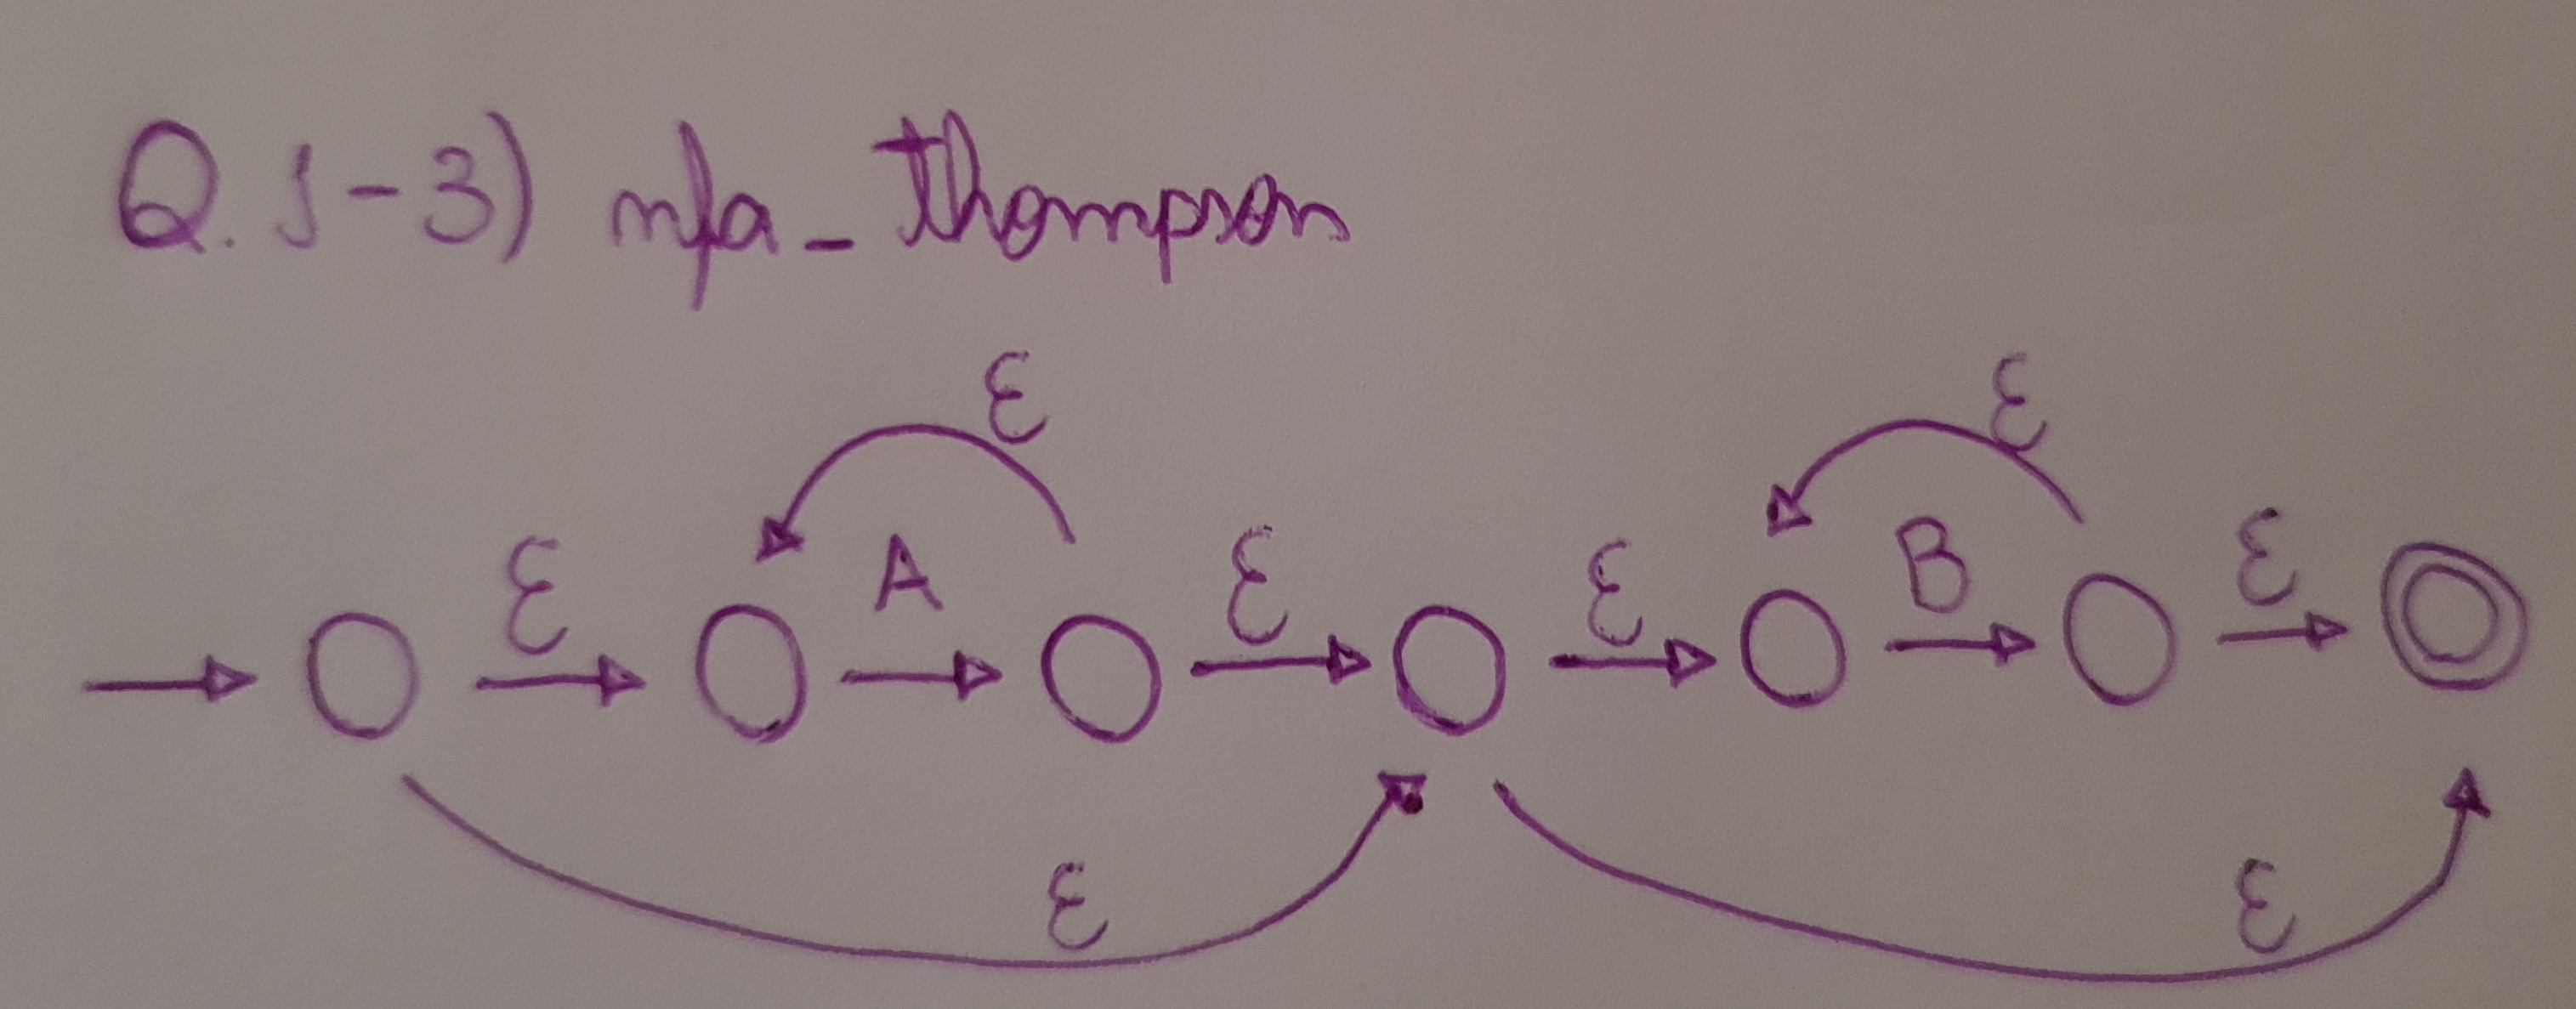 Q.1-3) nfa_thompson
ε ε
ε A ε ε B ε
ε ε